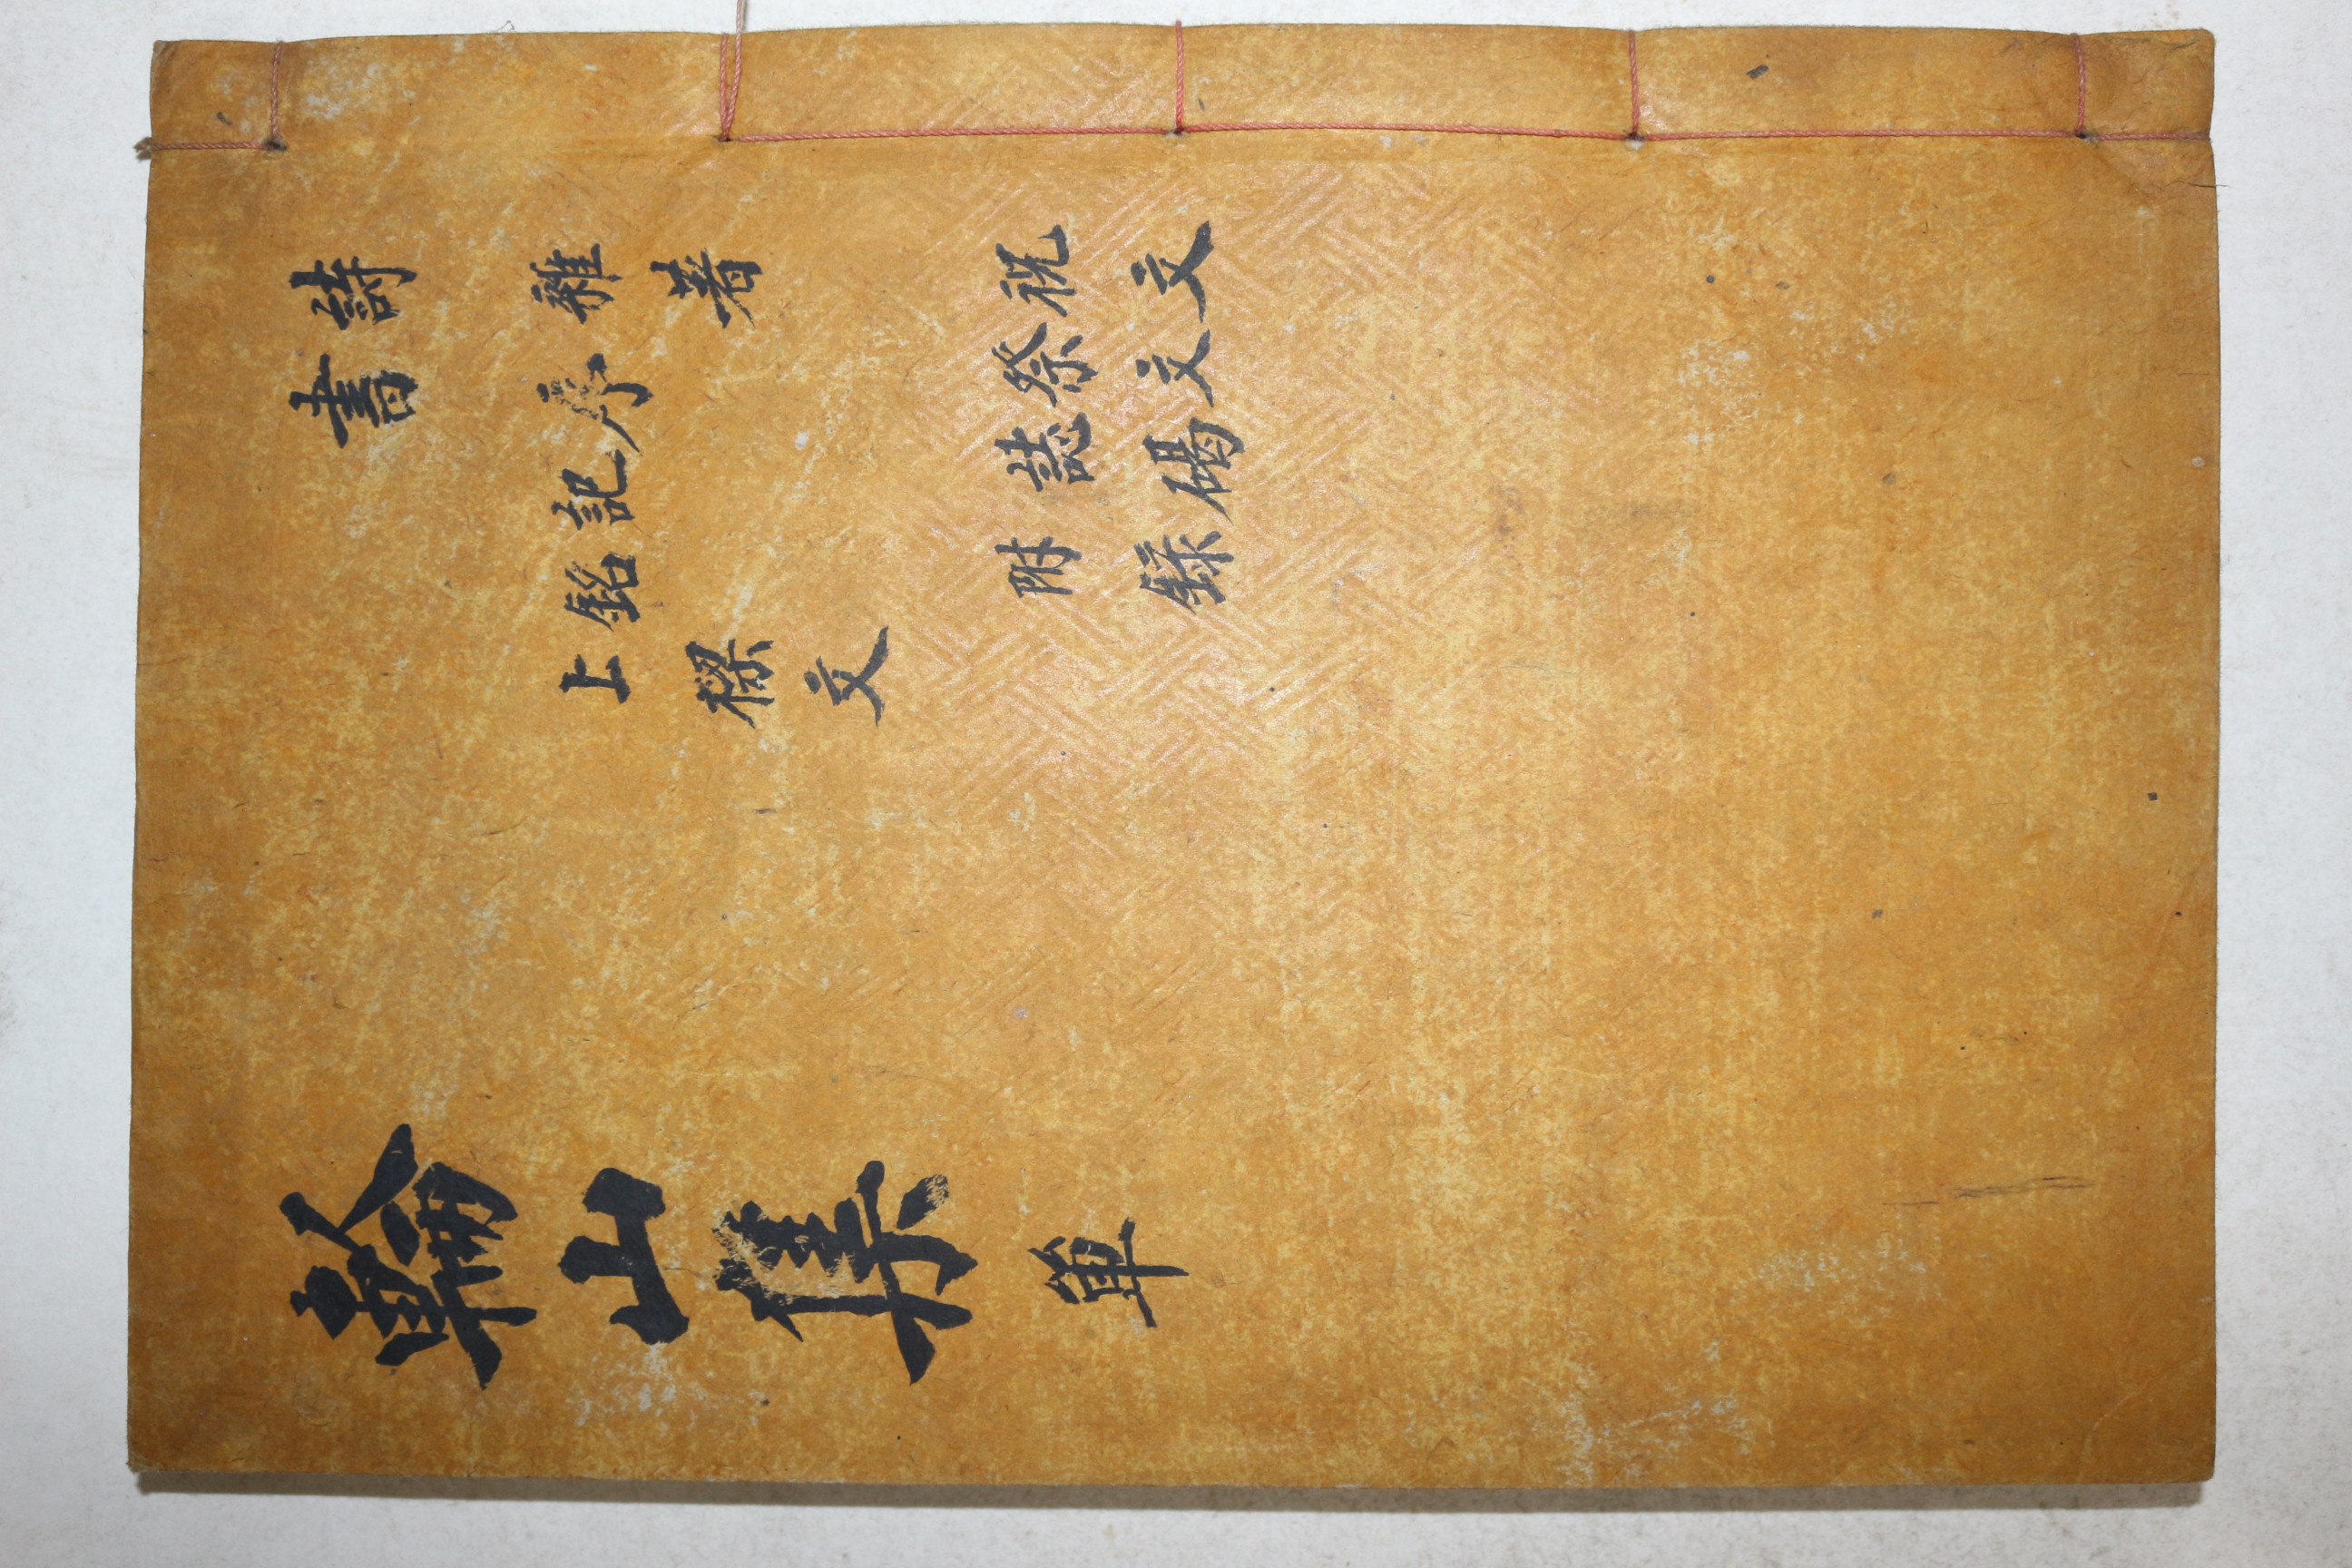 詩
書
雜著
序
記
銘
上樑文
祝文
祭文
誌碣
附錄
輪山集 單